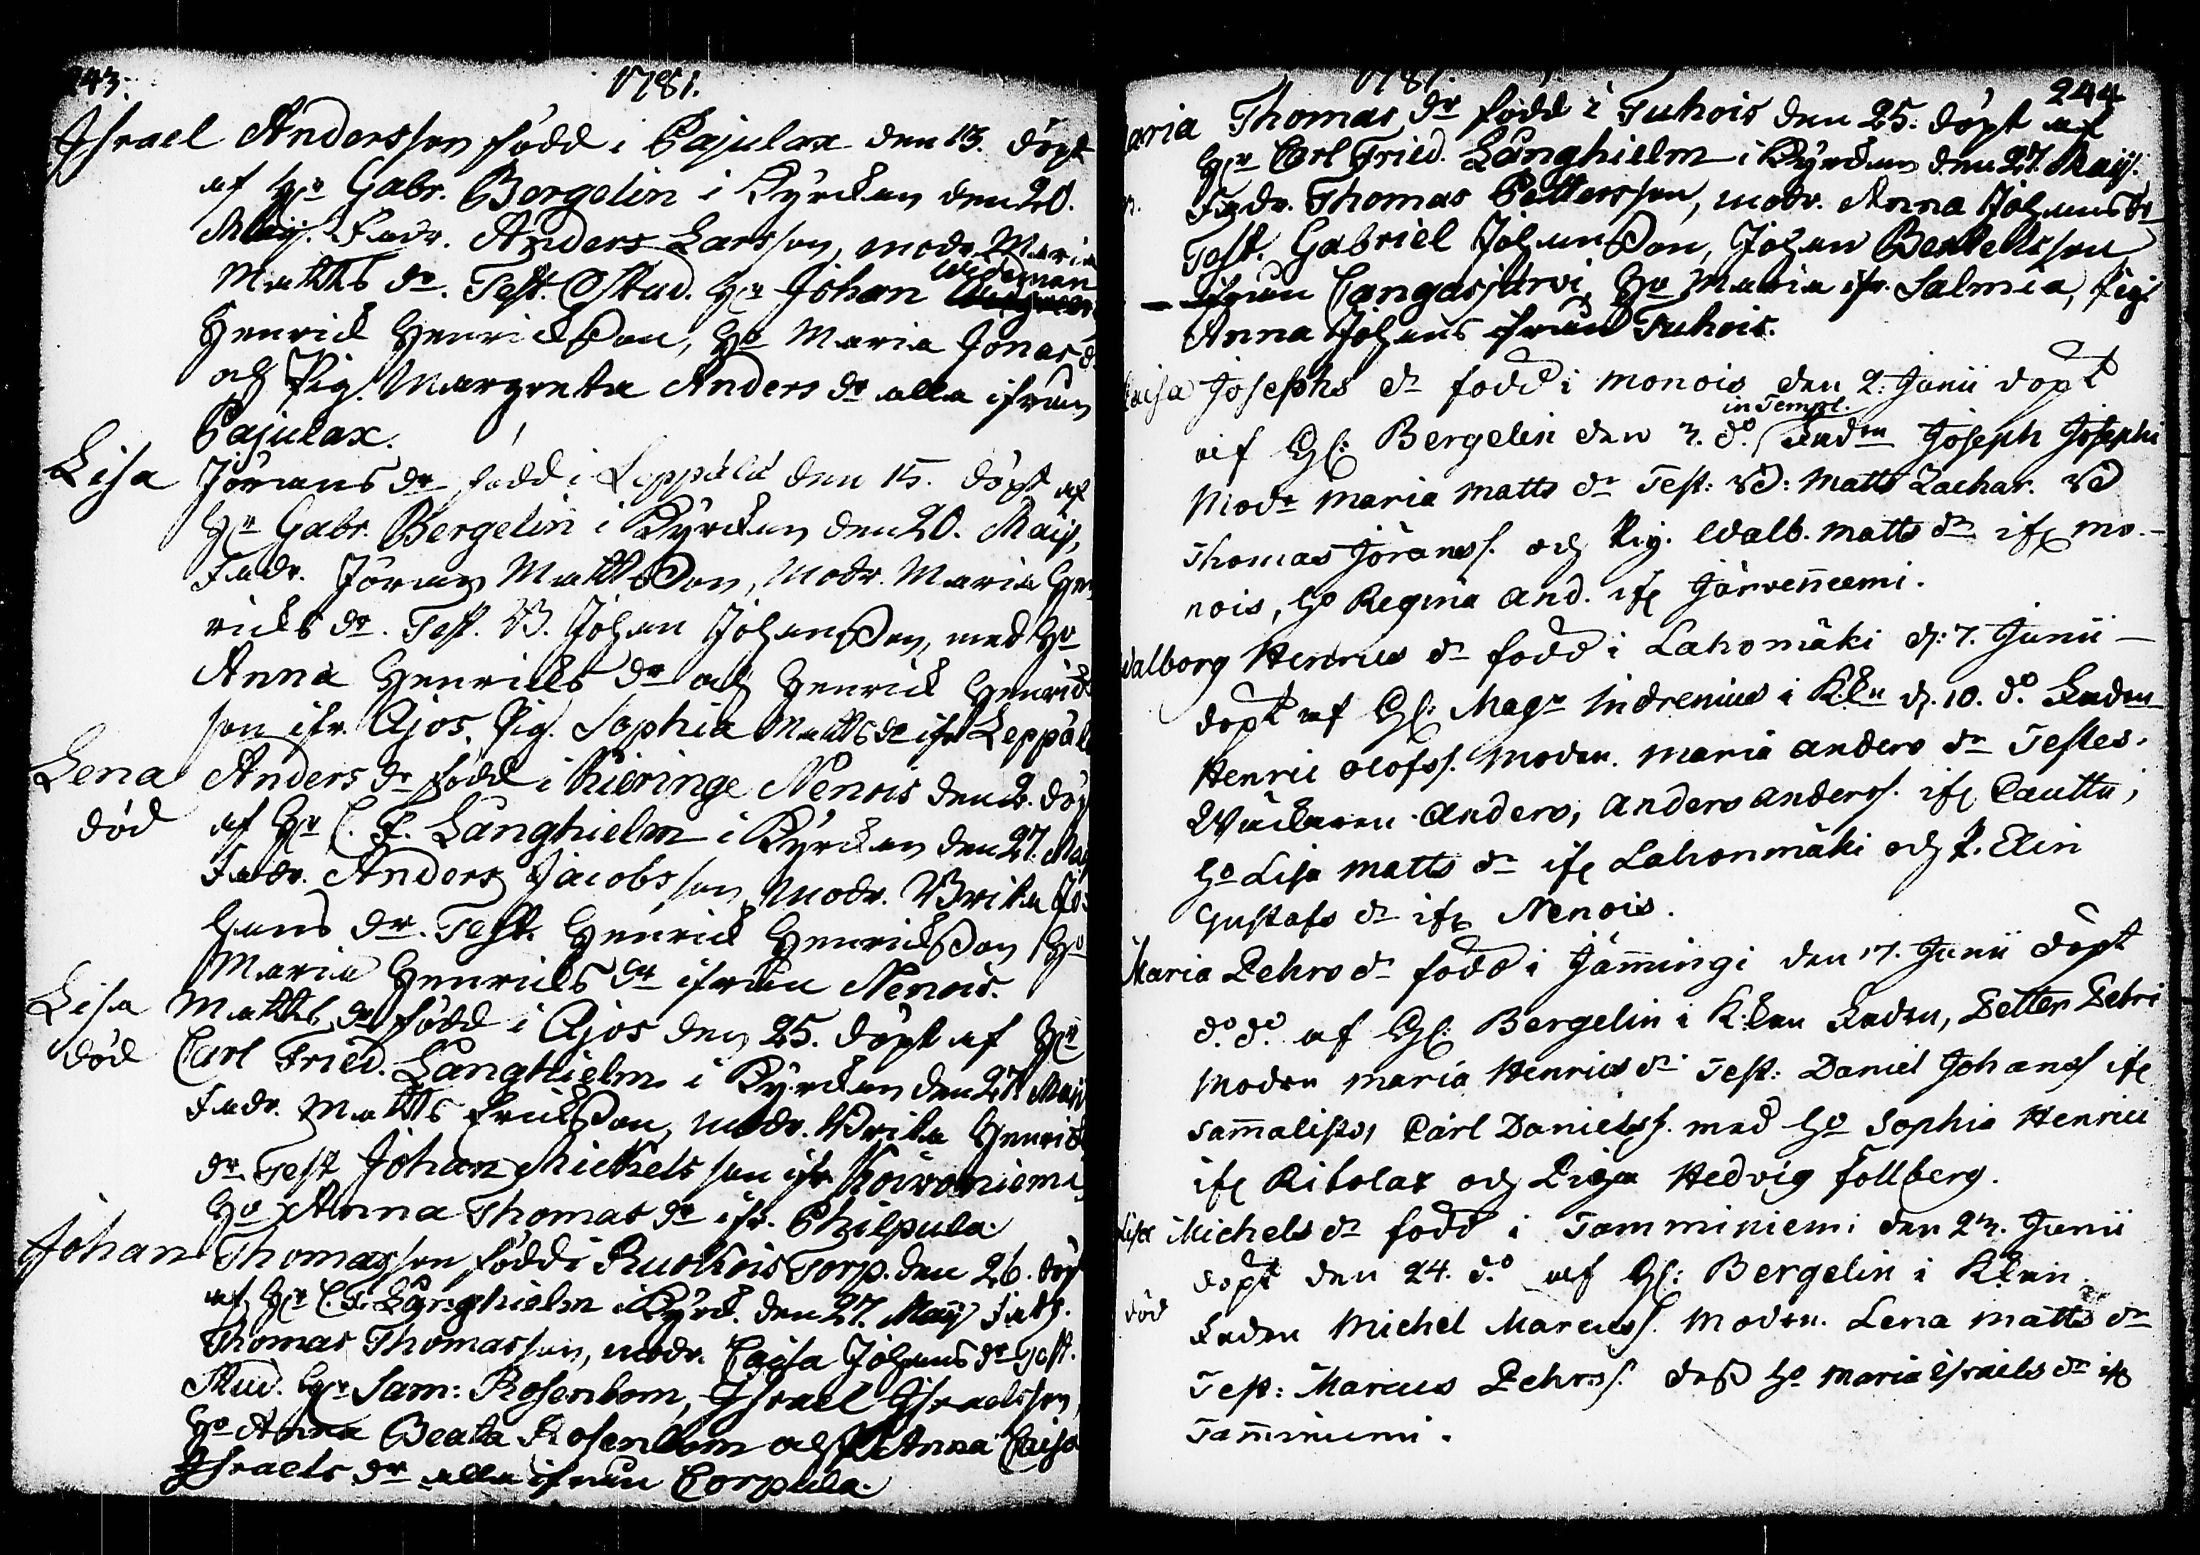 243.
1781.
Israel Andersson född i Pajulax den 13. döpt
af Hr Gabr. Bergelin i Kyrckan den 20.
Maij. Fadr. Anders Larsson, modr. Maria
Matts dr. Test. Stud. Hr Johan Wideman
Henrick Henricksson, Ho Maria Jonas d.
och Pig. Margreta Anders dr alla ifrån
Pajulax.
Lisa Jörans dr född i Leppälä den 15. döpt af
Hr Gabr. Bergelin i Kyrckan den 20. Maij,
Fadr. Jöran Mattsson, Modr. Maria Hen
ricks dr. Test. B. Johan Johansson, med Ho
Anna Henricks dr och Henrick Henrick
son ifr. Ajos, Pig. Sophia Matts dr ifr Leppäl
Lena Anders dr född i Kieringe Nenois den 2. döp
död af Hr C. F. Långhielm i Kyrckan den 27. Maij
Fadr. Anders Jacobsson, Modr. Brita Jo
hans dr. Test. Henrick Henricksson Ho
Maria Henricks dr ifrån Nenois.
Lisa Matts dr född i Ajos den 25. döpt af Hr
död Carl Fried. Långhielm i Kyrckan den 27. Maij
Fadr. Matts Ericksson, modr. Brita Henrick
dr Test Johan Michelsson ifr Koivoniemi,
Ho Anna Thomas dr ifr. Philpula.
Johan Thomasson född i Ruokois Torp. den 26. döp
af Hr C. F. Långhielm i Kyrck. den 27. Maij Fadr.
Thomas Thomasson, modr. Caisa Johans dr Test.
Stud. Hr Sam: Rosenbom, Israel Israelsson,
Ho Anna Beata Rosenbom och P. Anna Caisa
Israels dr alla ifrån Corpula.
1781.
244
aria Thomas dr född i Tuhois den 25. döpt af
Hr Carl Fried. Långhielm i Kyrckan den 27. Maij.
Fadr. Thomas Pettersson, modr. Anna Johans dr
Test. Gabriel Johansson, Johan Bertellsson
ifrån Cangasjärvi, Ho Maria ifr. Salmia, Pig.
Anna Johans ifrån Tuhois.
Caisa Josephs dr född i Monois den 2. Junii döpt
in Templ.
af Hl: Bergelin den 3. do. Fadren Joseph Josephs
Modr Maria Matts dr Test: Bd: Matts Zachar. Bd
Thomas Jöranss. och Pig. Walb. Matts dr ifr Mo-
nois, Ho Regina And. ifr Järvenneemi.
Walborg Henrics dr född i Lahomäki d: 7. Junii
döpt af Hl: Magr Indrenius i K:kn d. 10. do. Fadren
Henric Olofss. Modren. Maria Anders dr Testes.
Anders, Anders Anderss. ifr Cauttu,
Ho Lisa Matts dr ifr Lahonmäki och P. Elin
Gustafs dr ifr Nenois.
Maria Pehrs dr född i Jämingi den 17. Junii döpt
do. do. af Hl: Bergelin i K:kan Fadren, Petter Petri
Modren Maria Henrics dr Test: Daniel Johanss ifr
Samalisto, Carl Danielss. med Ho Sophia Henrici
ifr Ritolax och Piga Hedvig Follberg.
Lisa Michels dr född i Tamminiemi den 23. Junii
döpt den 24. do. af Hl: Bergelin i K:kan
död Fadren Michel Marcuss. Modren. Lena Matts dr
Test: Marcus Pehrss. dess Ho Maria Israels dr ifr
Tamminiemi.